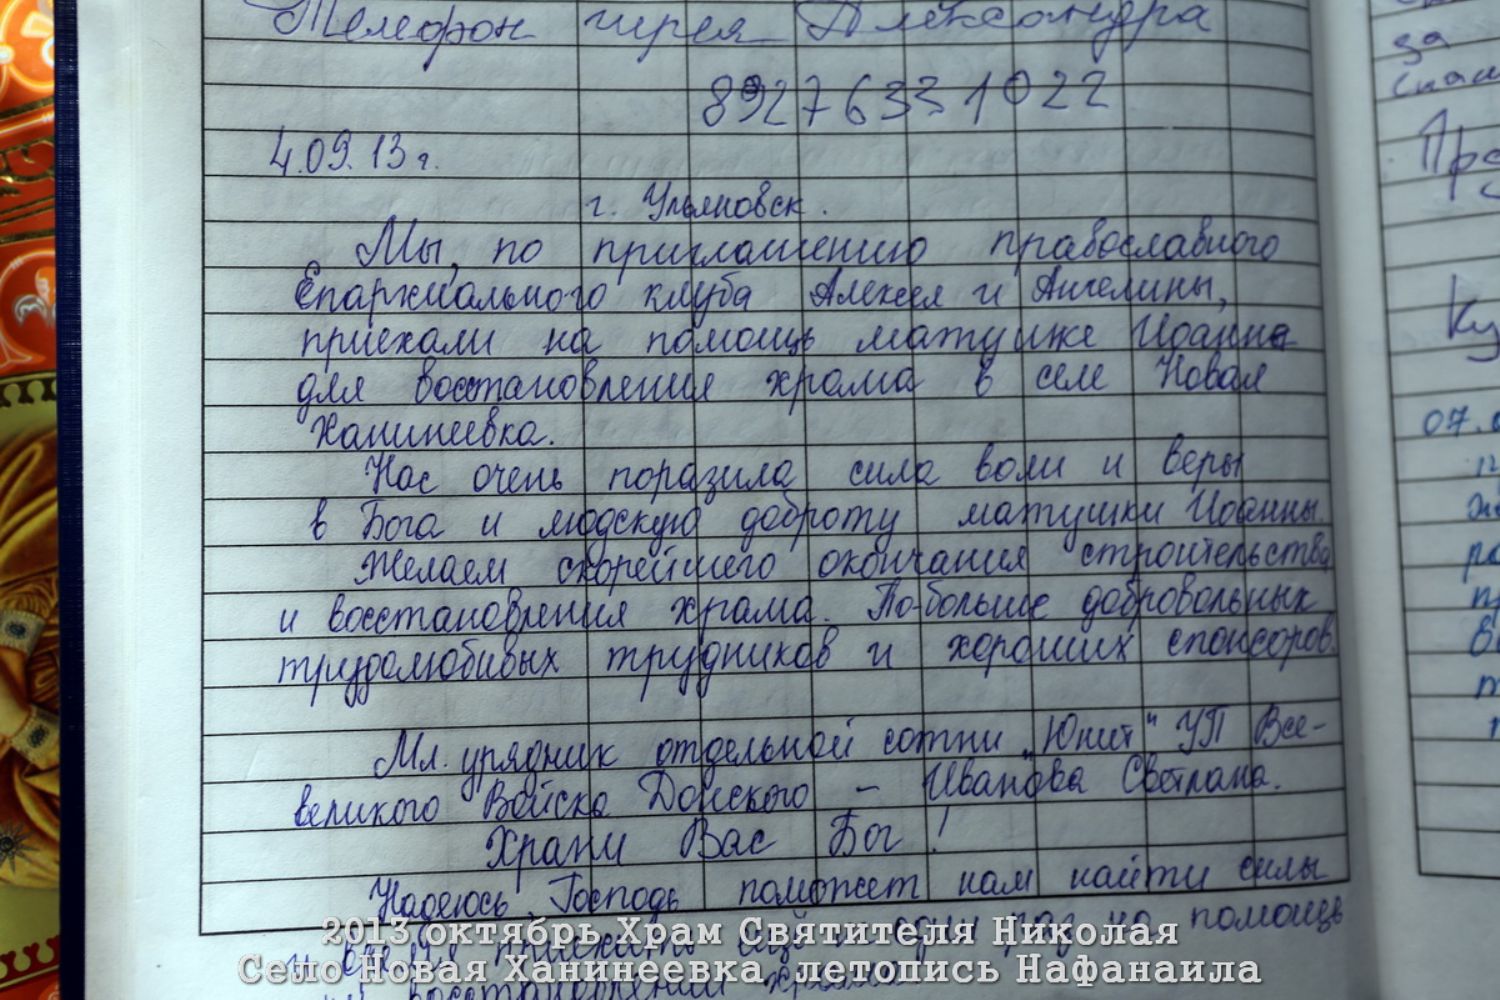 Телефон иерея Александра
89276331022
4.09.13 г.
г. Ульяновск.
Мы, по приглашению православного
Епархиального клуба Алексея и Ангелины,
приехали на помощь матушке Иоанне
для восстановления храма в селе Новая
Ханинеевка.
Нас очень поразила сила воли и веры
в Бога и людскую доброту матушки Иоанны.
Желаем скорейшего окончания строительства
и восстановления храма. По-больше добровольных
трудолюбивых трудников и хороших спонсоров.
Мл. урядник отдельной сотни "Юнит" УП Все-
великого Войска Донского – Иванова Светлана.
Храни Вас Бог!
Надеюсь, Господь поможет нам найти силы
и приехать ещё один раз на помощь
восстановлении храма
2013 октябрь Храм Святителя Николая
Село Новая Ханинеевка, летопись Нафанаила
за
Пр
Ку
07.